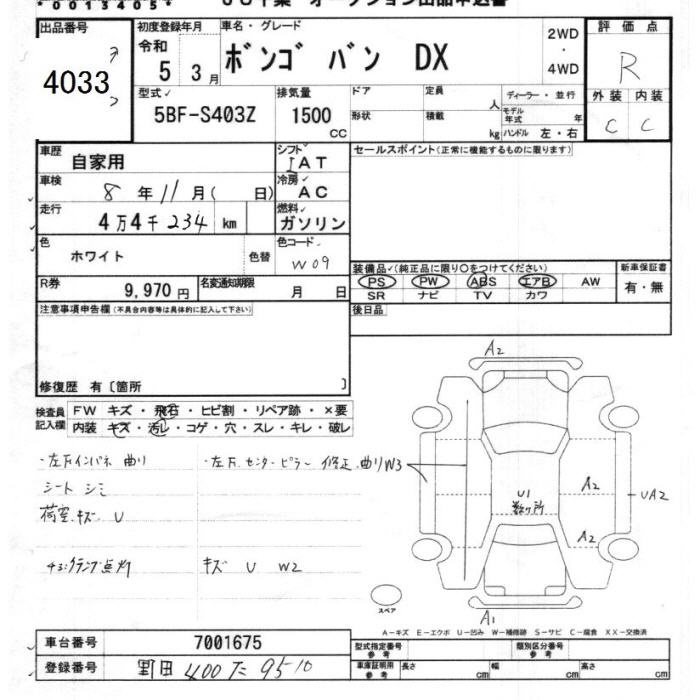 *00134054*
出品番号
4033
初度登録年月
令和
5 3月
車名・グレード
ボンゴ バン DX
2WD
・
4WD
評価点
R
外装 内装
C C
型式
5BF-S403Z
排気量
1500
CC
ドア
形状
定員
人
積載
kg
ディーラー・並行
モデル年式 年
ハンドル 左・右
車歴
自家用
シフト
IAT
セールスポイント(正常に機能するものに限ります)
車検
8年11月( 日)
冷房
AC
走行
4万4千234 km
燃料
ガソリン
色
ホワイト
色替
色コード
W09
装備品(純正品に限り○をつけてください)
PS PW ABS エアB AW
SR ナビ TV カワ
新車保証書
有・無
R券
9,970円
名変通知期限
月 日
後日品
注意事項申告欄(不具合内容等は具体的に記入して下さい)
修復歴 有〔箇所 〕
検査員記入欄
FW キズ・飛石・ヒビ割・リペア跡・×要
内装 キズ・汚レ・コゲ・穴・スレ・キレ・破レ
・左右インパネ 曲り
・左右センターピラー 修正、曲りW3
シート シミ
荷室キズ U
キズ U W2
A2
U1
A2
UA2
A2
A1
スペア
A-キズ E-エクボ U-凹み W-補修跡 S-サビ C-腐食 XX-交換済
車台番号
7001675
登録番号
野田 400 た 9510
型式指定番号
参考
類別区分番号
参考
車庫証明用
参考
長さ cm 幅 cm 高さ cm